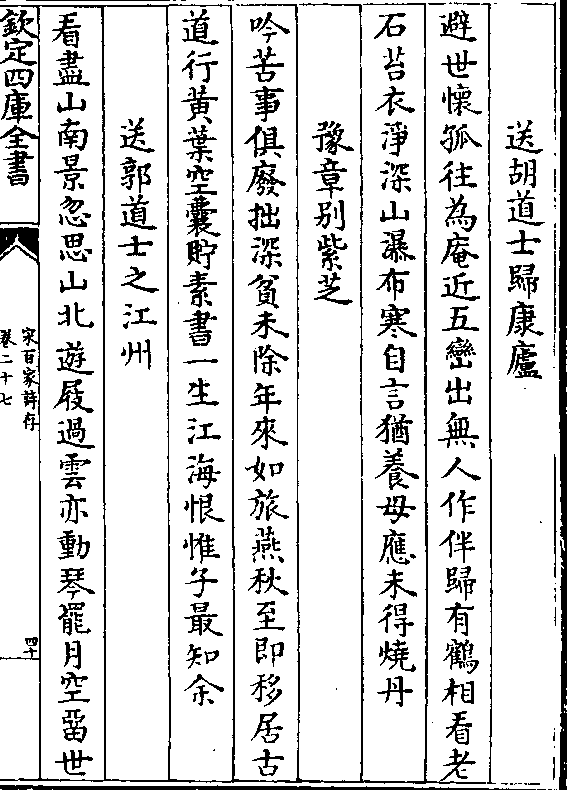 送胡道士歸康廬
避世懷孤往為庵近五巒出無人作伴歸有鶴相看老
石苔衣淨深山瀑布寒自言猶養母應未得燒丹
豫章别紫芝
吟苦事俱廢拙深貧未除年來如旅燕秋至即移居古
道行黃葉空囊貯素書一生江海恨惟子最知余
送郭道士之江州
看盡山南景忽思山北遊屐過雲亦動琴罷月空畱世
欽定四庫全書
宋百家詩存
卷二十七
四十